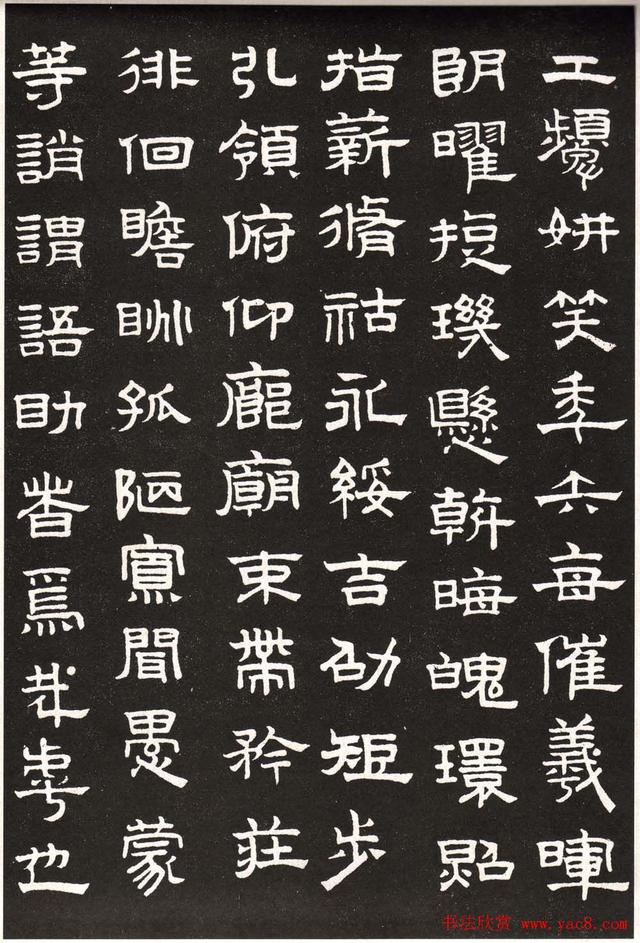 工顰妍笑年矢每催羲暉
朗曜旋璣懸斡晦魄環照
指薪脩祜永綏吉劭短步
引領俯仰廊廟束帶矜莊
徘徊瞻眺孤陋寡聞愚蒙
等誚謂語助者焉哉乎也
书法欣赏 www.yac8.com